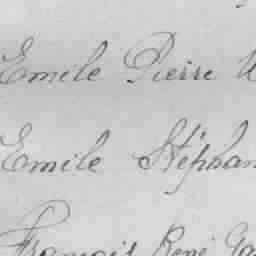 Emile Pierre
Emile Stéphan
François René